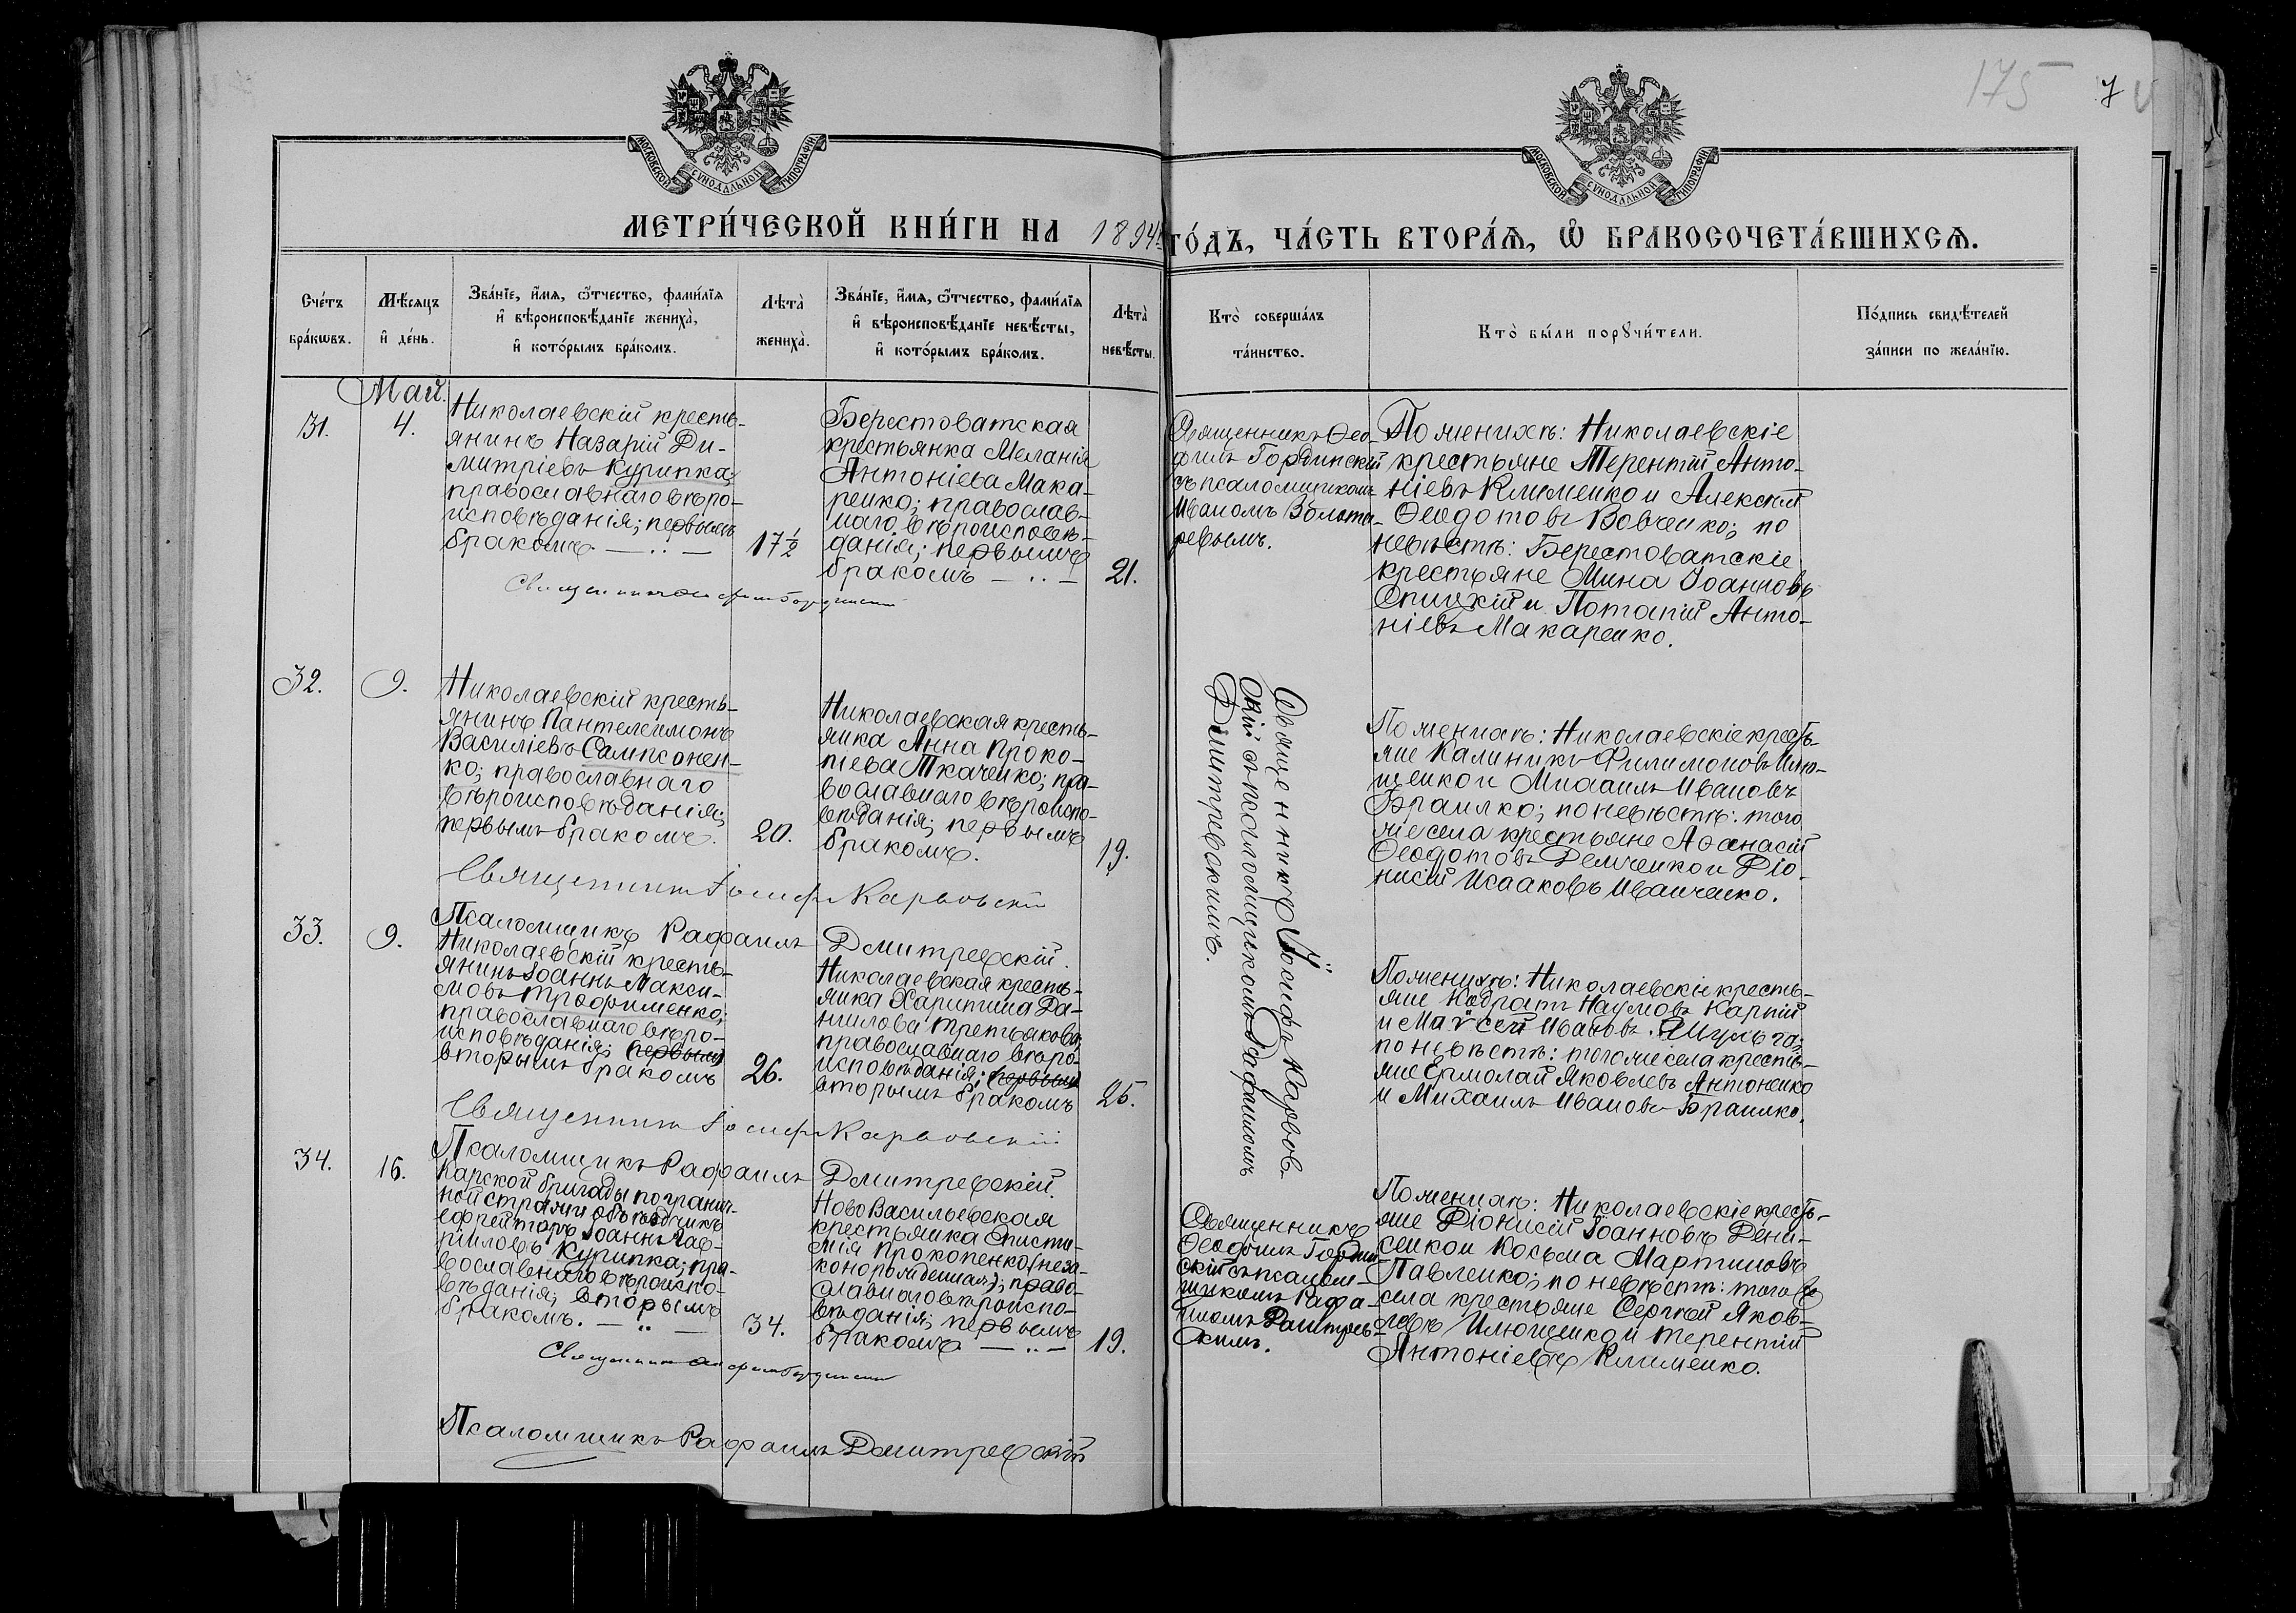 175
7
МОСКОВСКОЙ СУНОДАЛЬНОЙ ТИПОГРАФІИ
МОСКОВСКОЙ СУНОДАЛЬНОЙ ТИПОГРАФІИ
МЕТРИ́ЧЕСКОЙ КНИ́ГИ НА 1894 ГО́ДЪ, ЧА́СТЬ ВТОРА́Ѧ, Ѡ҆ БРАКОСОЧЕТА́ВШИХСѦ.
Сче́тъ
бра́кѡвъ.
Мѣ́сяцъ
и҆ де́нь.
Зва́нїе, и҆́мя, ѻ҆́тчество, фами́лїя
и҆ вѣроисповѣ́данїе жениха̀,
и҆ кото́рымъ бра́комъ.
Лѣта̀
жениха̀.
Зва́нїе, и҆́мя, ѻ҆́тчество, фами́лїя
и҆ вѣроисповѣ́данїе невѣ́сты,
и҆ кото́рымъ бра́комъ.
Лѣта̀
невѣ́сты.
Кто̀ соверша́лъ
та́инство.
Кто̀ бы́ли порꙋчи́тели.
По́дпись свидѣ́телей
за́писи по жела́нїю.
Май.
31.
4.
Николаевскій кресть-
янинъ Назарій Ди-
митріевъ Курипка;
православнаго вѣро-
исповѣданія; первымъ
бракомъ.
17 ½
Берестоватская
крестьянка Меланія
Антоніева Мака-
ренко; православ-
наго вѣроисповѣ-
данія; первымъ
бракомъ
21.
Священникъ Ѳео-
филъ Гординскій
съ псаломщикомъ
Иваномъ Золота-
ревымъ.
По женихѣ: Николаевскіе
крестьяне Терентій Анто-
ніевъ Клименко и Алексій
Ѳеодотовъ Вовченко; по
невѣстѣ: Берестоватскіе
крестьяне Мина Іоанновъ
Спицкій и Потапій Анто-
ніевъ Макаренко.
32.
9.
Николаевскій кресть-
янинъ Пантелеимонъ
Василіевъ Сампсонен-
ко; православнаго
вѣроисповѣданія;
первымъ бракомъ.
20.
Николаевская кресть-
янка Анна Проко-
піева Ткаченко; пра-
вославнаго вѣроиспо-
вѣданія; первымъ
бракомъ.
19.
Священникъ Іосифъ Карвов-
скій съ псаломщикомъ Рафаиломъ
Дмитревскимъ.
По женихѣ: Николаевскіе кресть-
яне Калиникъ Филимоновъ Илю-
щенко и Михаилъ Ивановъ
Браилко; по невѣстѣ: того
же села крестьяне Аѳанасій
Ѳеодотовъ Демченко и Діо-
нисій Исааковъ Иванченко.
Священникъ Іосифъ Карвовскій
Псаломщикъ Рафаилъ Дмитревскій.
33.
9.
Николаевскій кресть-
янинъ Іоаннъ Макси-
мовъ Трофименко;
православнаго вѣро-
исповѣданія; первымъ
вторымъ бракомъ
26.
Николаевская кресть-
янка Харитина Да-
нилова Третьякова;
православнаго вѣро-
исповѣданія; первымъ
вторымъ бракомъ
25.
По женихѣ: Николаевскіе кресть-
яне Кодратъ Наумовъ Карпій
и Моѵсей Ивановъ Шульга;
по невѣстѣ: того же села кресть-
яне Ермолай Яковлевъ Антоненко
и Михаилъ Ивановъ Браилко.
Священникъ Іосифъ Карвовскій
Псаломщикъ Рафаилъ Дмитревскій.
34.
16.
Карской бригады погранич-
ной стражи объѣздчикъ
ефрейторъ Іоаннъ Гав-
риловъ Курипка; пра-
вославнаго вѣроиспо-
вѣданія; вторымъ
бракомъ.
34.
НовоВасильевская
крестьянка Еписти-
мія Прокопенко (неза-
коннорожденная); право-
славнаго вѣроиспо-
вѣданія; первымъ
бракомъ
19.
Священникъ
Ѳеофилъ Гордин-
скій съ псалом-
щикомъ Рафа-
иломъ Дмитрев-
скимъ.
По женихѣ: Николаевскіе кресть-
яне Діонисій Іоанновъ Дени-
сенко и Косьма Мартиновъ
Павленко; по невѣстѣ: того же
села крестьяне Сергѣй Яков-
левъ Илющенко и Терентій
Антоніевъ Клименко.
Псаломщикъ Рафаилъ Дмитревскій